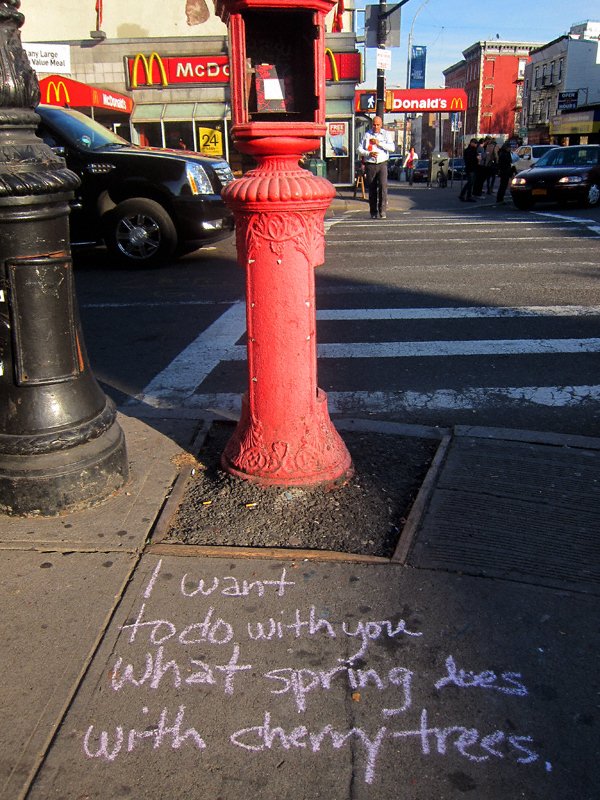 any Large
Value Meal
McDo
McDonald's
24
FREE
Donald's
OPEN
I want
to do with you
what spring does
with cherry trees.